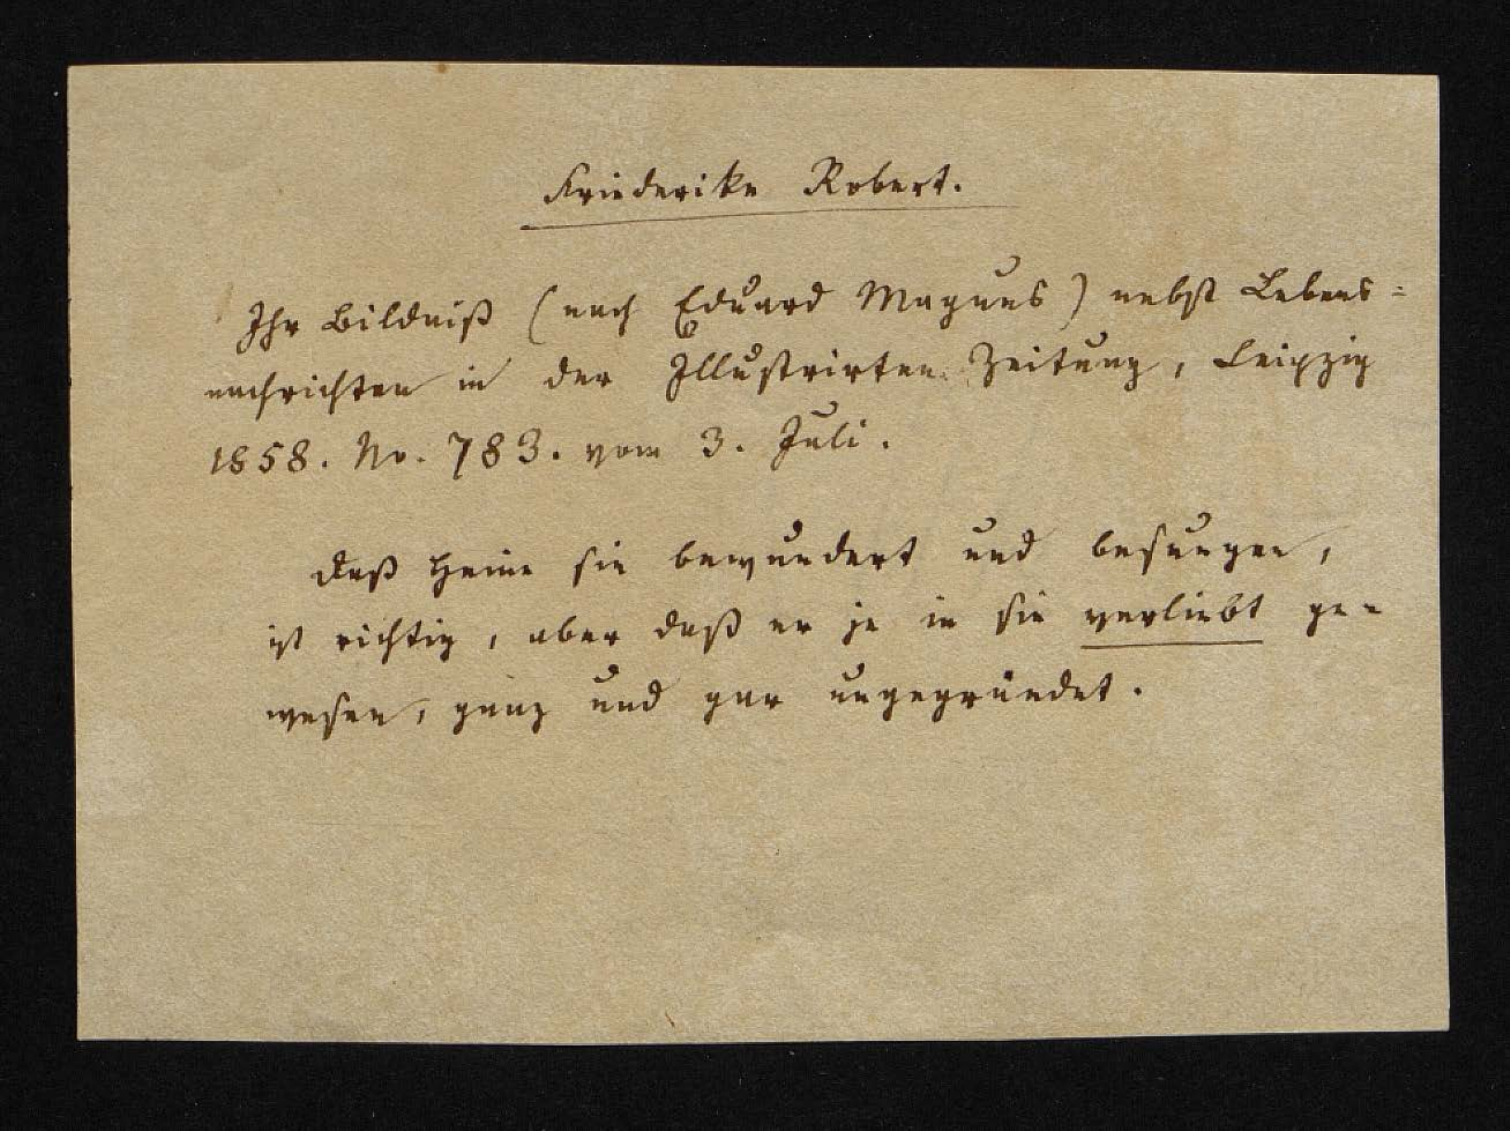 Friederike Robert.
Ihr Bildniß (nach Eduard Magnus) nebst Lebens=
nachrichten in der Illustrirten Zeitung, Leipzig
1858. No. 783. vom 3. Juli.
Daß Heine sie bewundert und besungen,
ist richtig, aber daß er je in sie verliebt ge-
wesen, ganz und gar ungegründet.